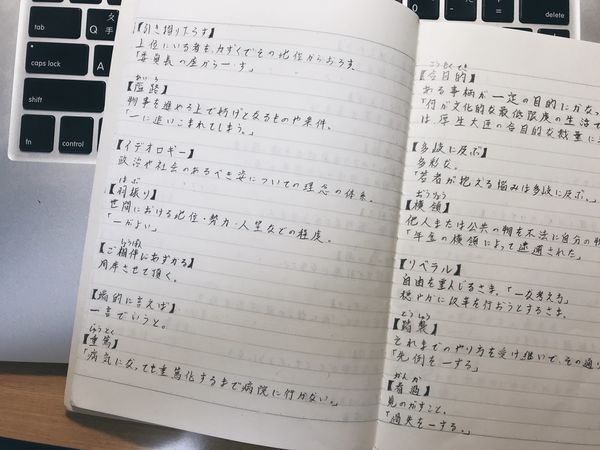 tab
caps lock
shift
fn
control
Q
【引き摺り下ろす】
上位にいる者を、力ずくでその地位からおろす。
「委員長の座から―す」
あいろ
【隘路】
物事を進める上で妨げとなるものや条件。
「―に追いこまれてしまう。」
【イデオロギー】
政治や社会のあるべき姿についての理念の体系。
はぶ
【羽振り】
世間における地位・勢力・人望などの程度。
「―がよい。」
しょうばん
【ご相伴にあずかる】
同席させて頂く。
【端的に言えば】
一言でいうと。
じゅうとく
【重篤】
「病気になっても重篤化するまで病院に行かない。」
ごうもくてき
【合目的】
ある事柄が一定の目的にかなっ
「何が文化的な最低限度の生活で
は厚生大臣の合目的な裁量に
【多岐に及ぶ】
多彩な。
「若者が抱える悩みは多岐に及ぶ。」
おうりょう
【横領】
他人または公共の物を不法に自分の物
「年金の横領によって逮捕された」
【リベラル】
自由を重んじるさま。「―な考え」
穏やかに改革を行おうとするさま。
とうしゅう
【踏襲】
それまでのやり方を受け継いで、その通り
「先例を―する」
かんか
【看過】
見のがすこと。
「過失を―する。」